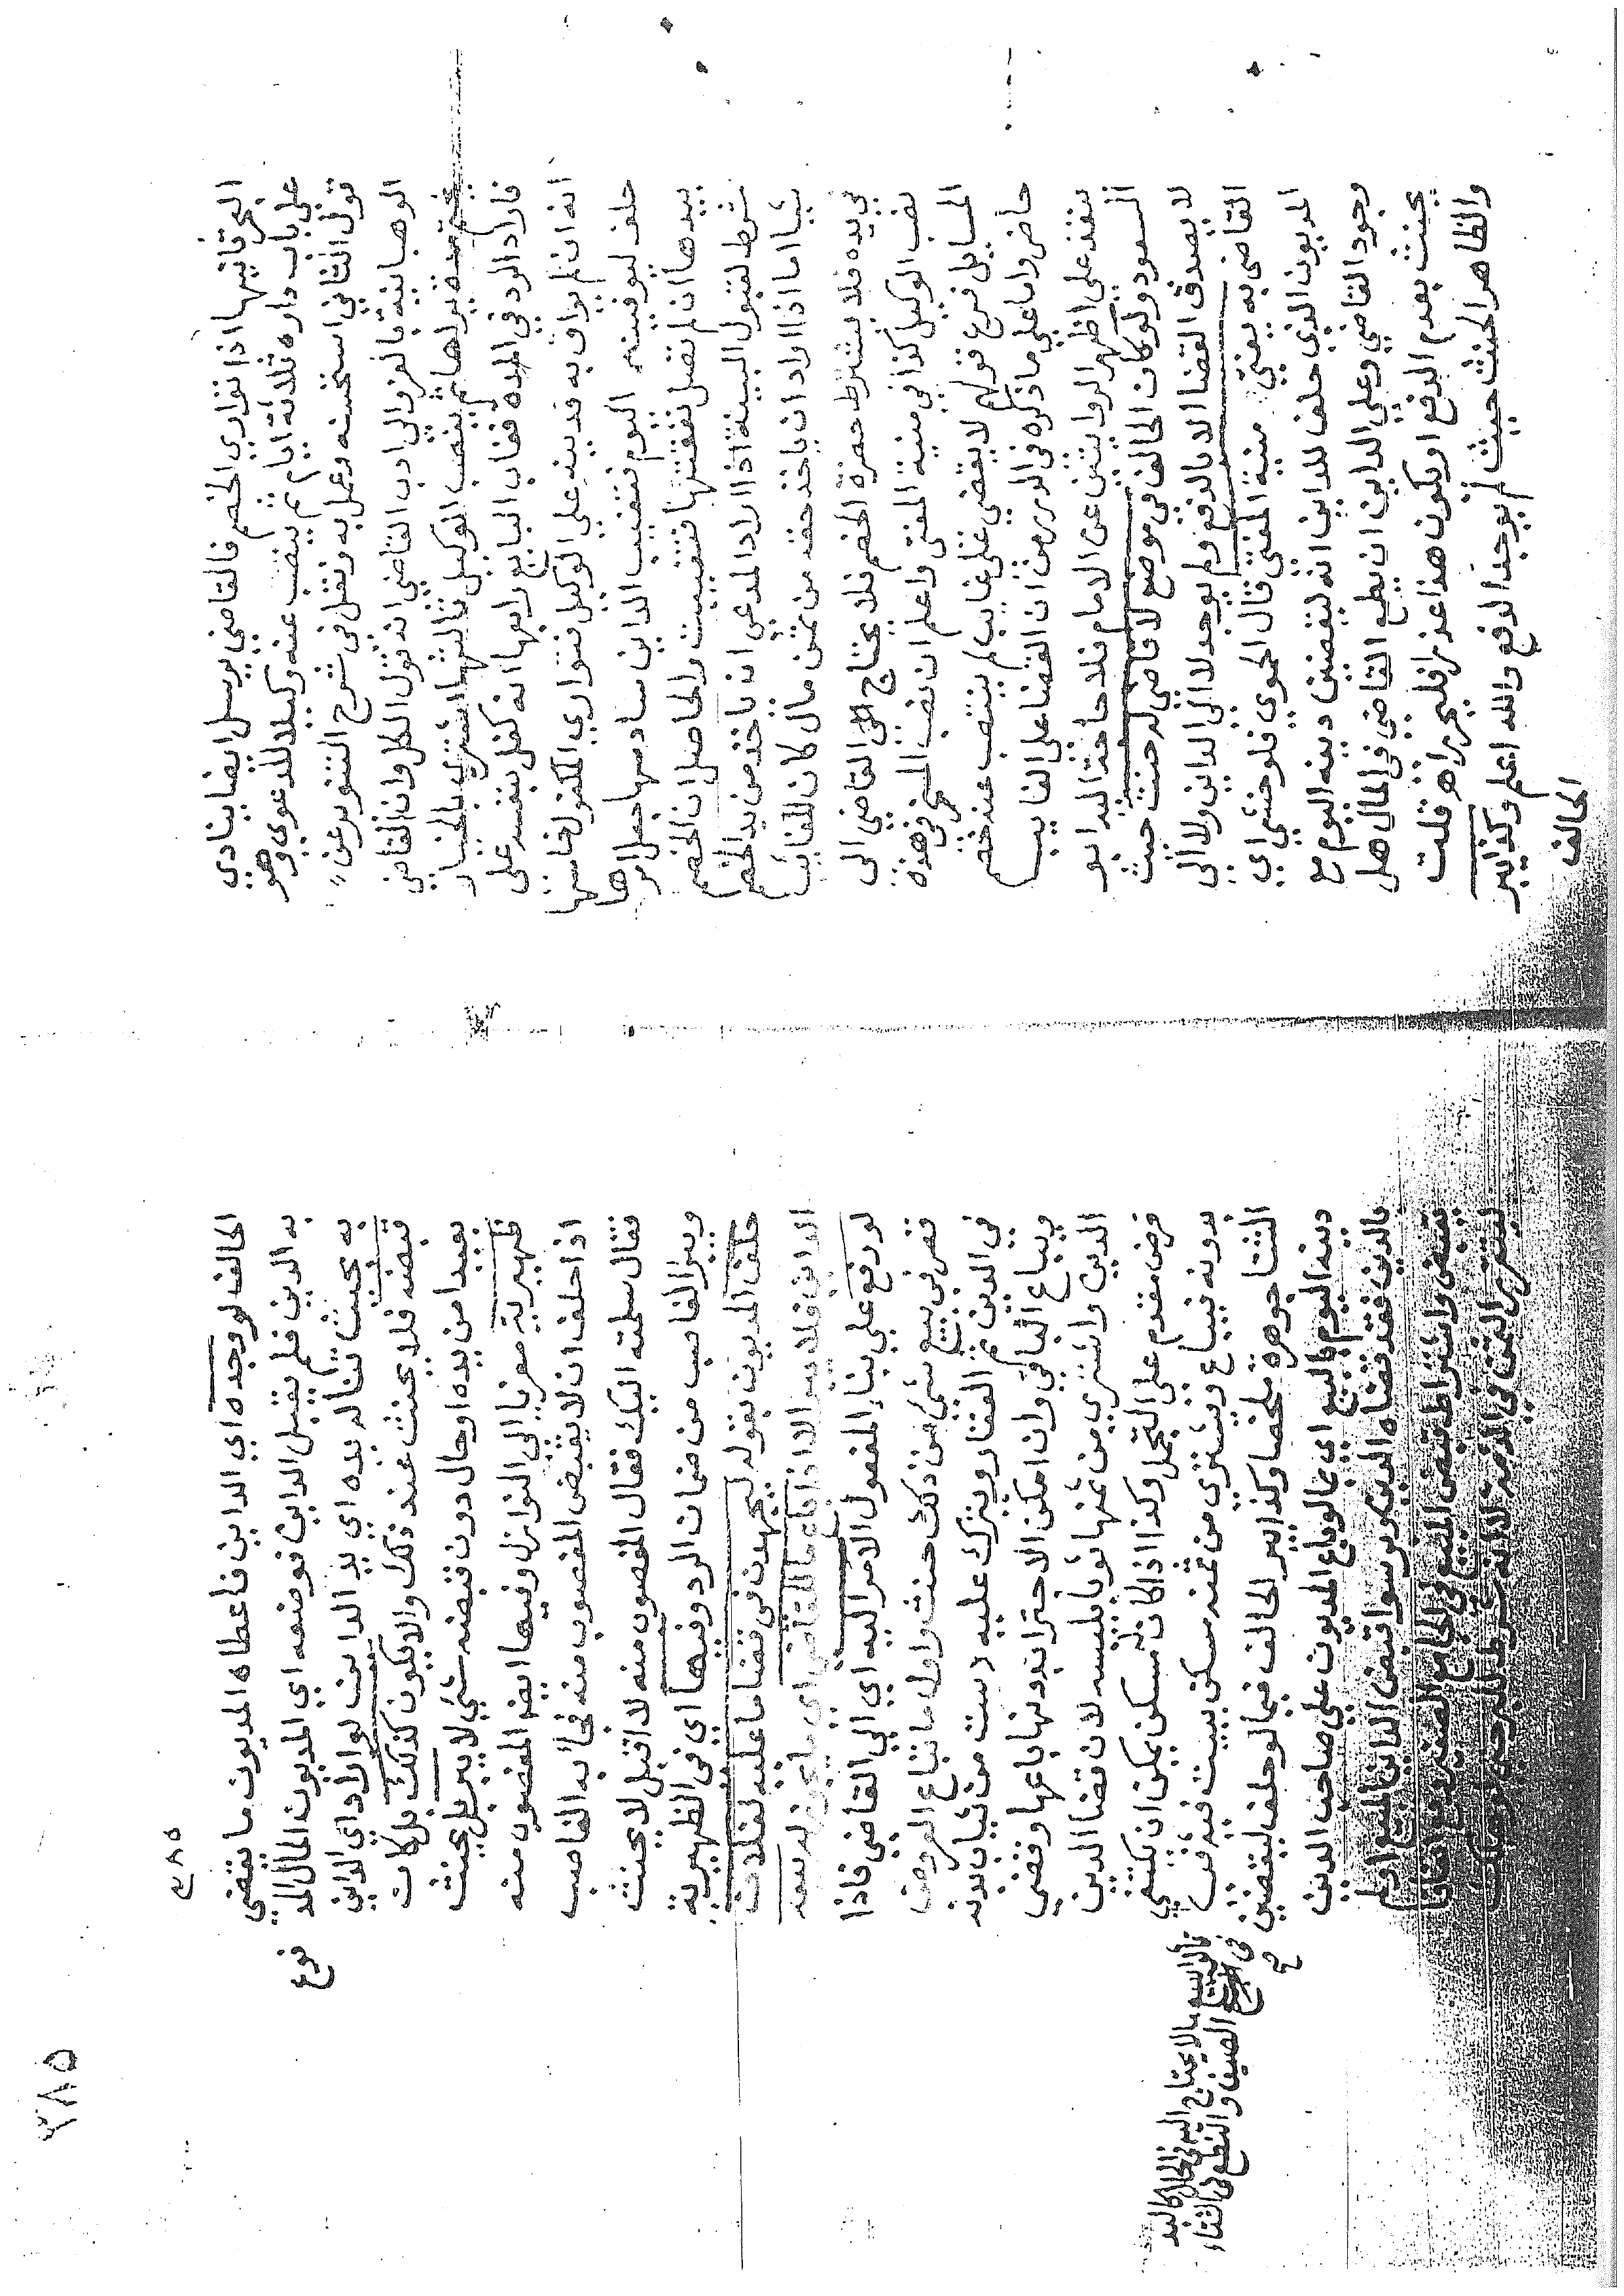 البحر ثانيها اذا تواري الخصم فالقاضي يرسل ايضا ينادي
علي باب داره ثلاثة ايام ثم ينصب عنه وكيلا للدعوي وهو
قول الثاني استحسنه وعمل به ونقل في شرح التنوير عن
الوهبانية بالعزو الي ادب القاضي انه قول الكل وان القاضي
يختم مدة يراها ثم ينصب الوكيل ثالثها اشتري بالخيار
فاراد الرد في المدة فغاب البايع رابعها انه كفل بنفسه علي
انه ان لم يواف به فدينه علي الوكيل فتواري المكفول خامسها
حلف ليوفينه اليوم فتغيب الداين سادسها جعل امرها
بيدها ان لم تصل نفقتها فتغيبت والحاصل ان الخصم
شرط لقبول البينة اذا اراد المدعي ان ياخذ من يد الخصم
شيا اما اذا اراد ان ياخذ حقه من ثمن مال كان للغائب
في يده فلا يشترط حضرة الخصم فلا يحتاج القاضي الي
نصب الوكيل كذا في منية المفتي واعلم ان نصب المسخر في هذه
المسايل فرع قولهم لا يقضي علي غايب ما لم ينتصب عنه خصم
حاضر واما علي ما ذكره في الدرر من ان القضا علي الغايب
ينفذ علي اظهر الروايتين عن الامام فلا حاجة اليه ابو
السعود ولو كان الحالف في موضع لا قاضي له حنث حيث
لا يصدق القضا الا بالدفع ولم يوجد لا الي الداين ولا الي
القاضي به يفتي منية المفتي قال الحموي فلو خشي اي
المديون الذي حلف للداين انه ليقضين دينه اليوم مع
وجود القاضي وعلي الداين ان يطمع القاضي في المال هل
يحنث بعدم الدفع او يكون هذا عذرا فليحرر اهـ قلت
والظاهر الحنث حيث لم يوجد الدفع والله اعلم وكذا يبر
الحالف
٢٨٥
٣٨٥
الحالف لو وجده اي الداين فاعطاه المديون ما يقضي
به الدين فلم يقبل الداين فوضعه اي المديون المال المد
فرع
به بحيث تناله يده اي يد الداين لو اراد اي الداين
قبضه فلا يحنث عند ذلك والا يكون كذلك بل كان
بعيدا من يده او حال دون قبضه شي لا يبر بل يحنث
ظهيرية معزيا الي النوازل وفيها ايضا المغصوب منه
اذا حلف ان لا يقبض المغصوب منه فجا به الغاصب
فقال سلمته اليك فقال المغصوب منه لا اقبل لا يحنث
ويبرا الغاصب من ضمان الرد وفيها اي في الظهيرية
حلف المديون بقوله ليجهدن في قضا ما عليه لفلان
الداين فلا يبر الا اذا باع ما للقاضي اي ما يجوز له بيعه
لو رفع علي بناء المفعول الامر اليه اي الي القاضي فاذا
قصر في بيع شي من ذلك حنث واول ما تباع العروض
في الدين ثم العقار ويترك عليه دست من ثياب بدنه
ويباع الباقي وان امكن الاحتزا بدونها باعها وقضي
الدين واشتري من ثمنها ثوبا يلبسه لان قضا الدين
فرض مقدم علي التجمل وكذا اذا كان له مسكن يمكن ان يكتفي
بدونه فيباع ويشتري من ثمنه مسكن يبيت فيه ق
الشتا جوهرة ملخصا وكذا يبر الحالف فيما لو حلف ليقضين
دينه اليوم بالبيع اي بما لو باع المديون علي صاحب الدين
بالدين فقد قضاه الدين وبر سوا قبض الداين المبيع او لم
يقبض واشتراط قبض المبيع في الجامع الصغير وقع اتفاقا
ليتقرر الثمن في الذمة لا انه شرط للبر
قالوا يبيع ما لا يحتاج اليه في الحال كاللبد
في الصيف والنطع في الشتاء